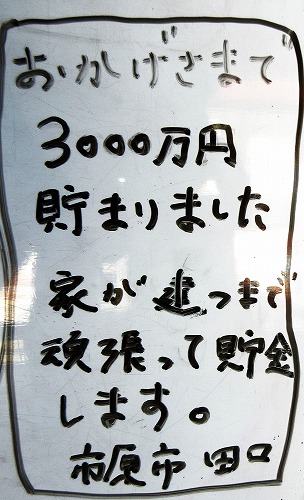 おかげさまで
3000万円
貯まりました
家が建つまで
頑張って貯金
します。
市原市 田口